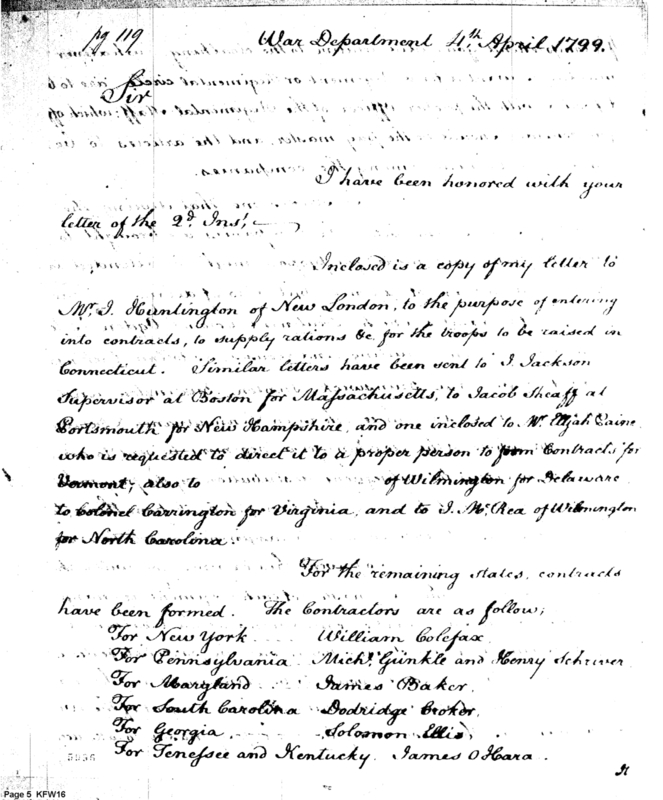 pg 119
War Department 4th April 1799.
Sir
I have been honored with your
letter of the 2d. Inst,
Inclosed is a copy of my letter to
Mr. J. Huntington of New London, to the purpose of entering
into contracts, to supply rations &c. for the troops to be raised in
Connecticut. Similar letters have been sent to J. Jackson
Supervisor at Boston for Massachusetts, to Jacob Sheaff at
Portsmouth for New Hampshire, and one inclosed to Elijah Paine
who is requested to direct it to a proper person to form Contracts for
Vermont; also to of Wilmington for Delaware
to Colonel Carrington for Virginia, and to J. McRea of Wilmington
for North Carolina.
For the remaining states, contracts
have been formed. The Contractors are as follow;
For New York William Colefax.
For Pennsylvania Michl. Gunkle and Henry Schriver
For Maryland James Baker.
For South Carolina Dodridge Croker.
For Georgia Solomon Ellis.
For Tenessee and Kentucky. James O Hara.
5956
Page 5 KFW16